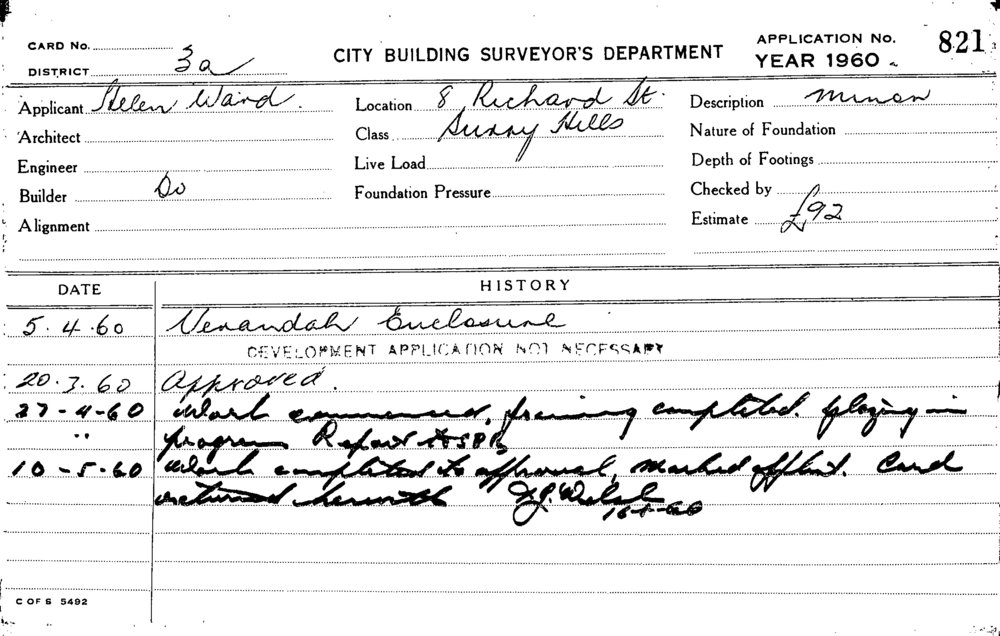 CARD No.
CITY BUILDING SURVEYOR'S DEPARTMENT
APPLICATION No. 821
DISTRICT 3a
YEAR 1960
Applicant Helen Ward.
Location 8 Richard St.
Description Minor
Architect
Class Surry Hills
Nature of Foundation
Engineer
Live Load
Depth of Footings
Builder Do
Foundation Pressure
Checked by
Alignment
Estimate £92
DATE
HISTORY
5.4.60 Verandah Enclosure
DEVELOPMENT APPLICATION NOT NECESSARY
20.3.60 Approved.
27-4-60 Work commenced, framing completed. Glazing in
" progress Report
10-5-60 Work completed to approval, marked off list. Card
returned herewith
C OF S 5492